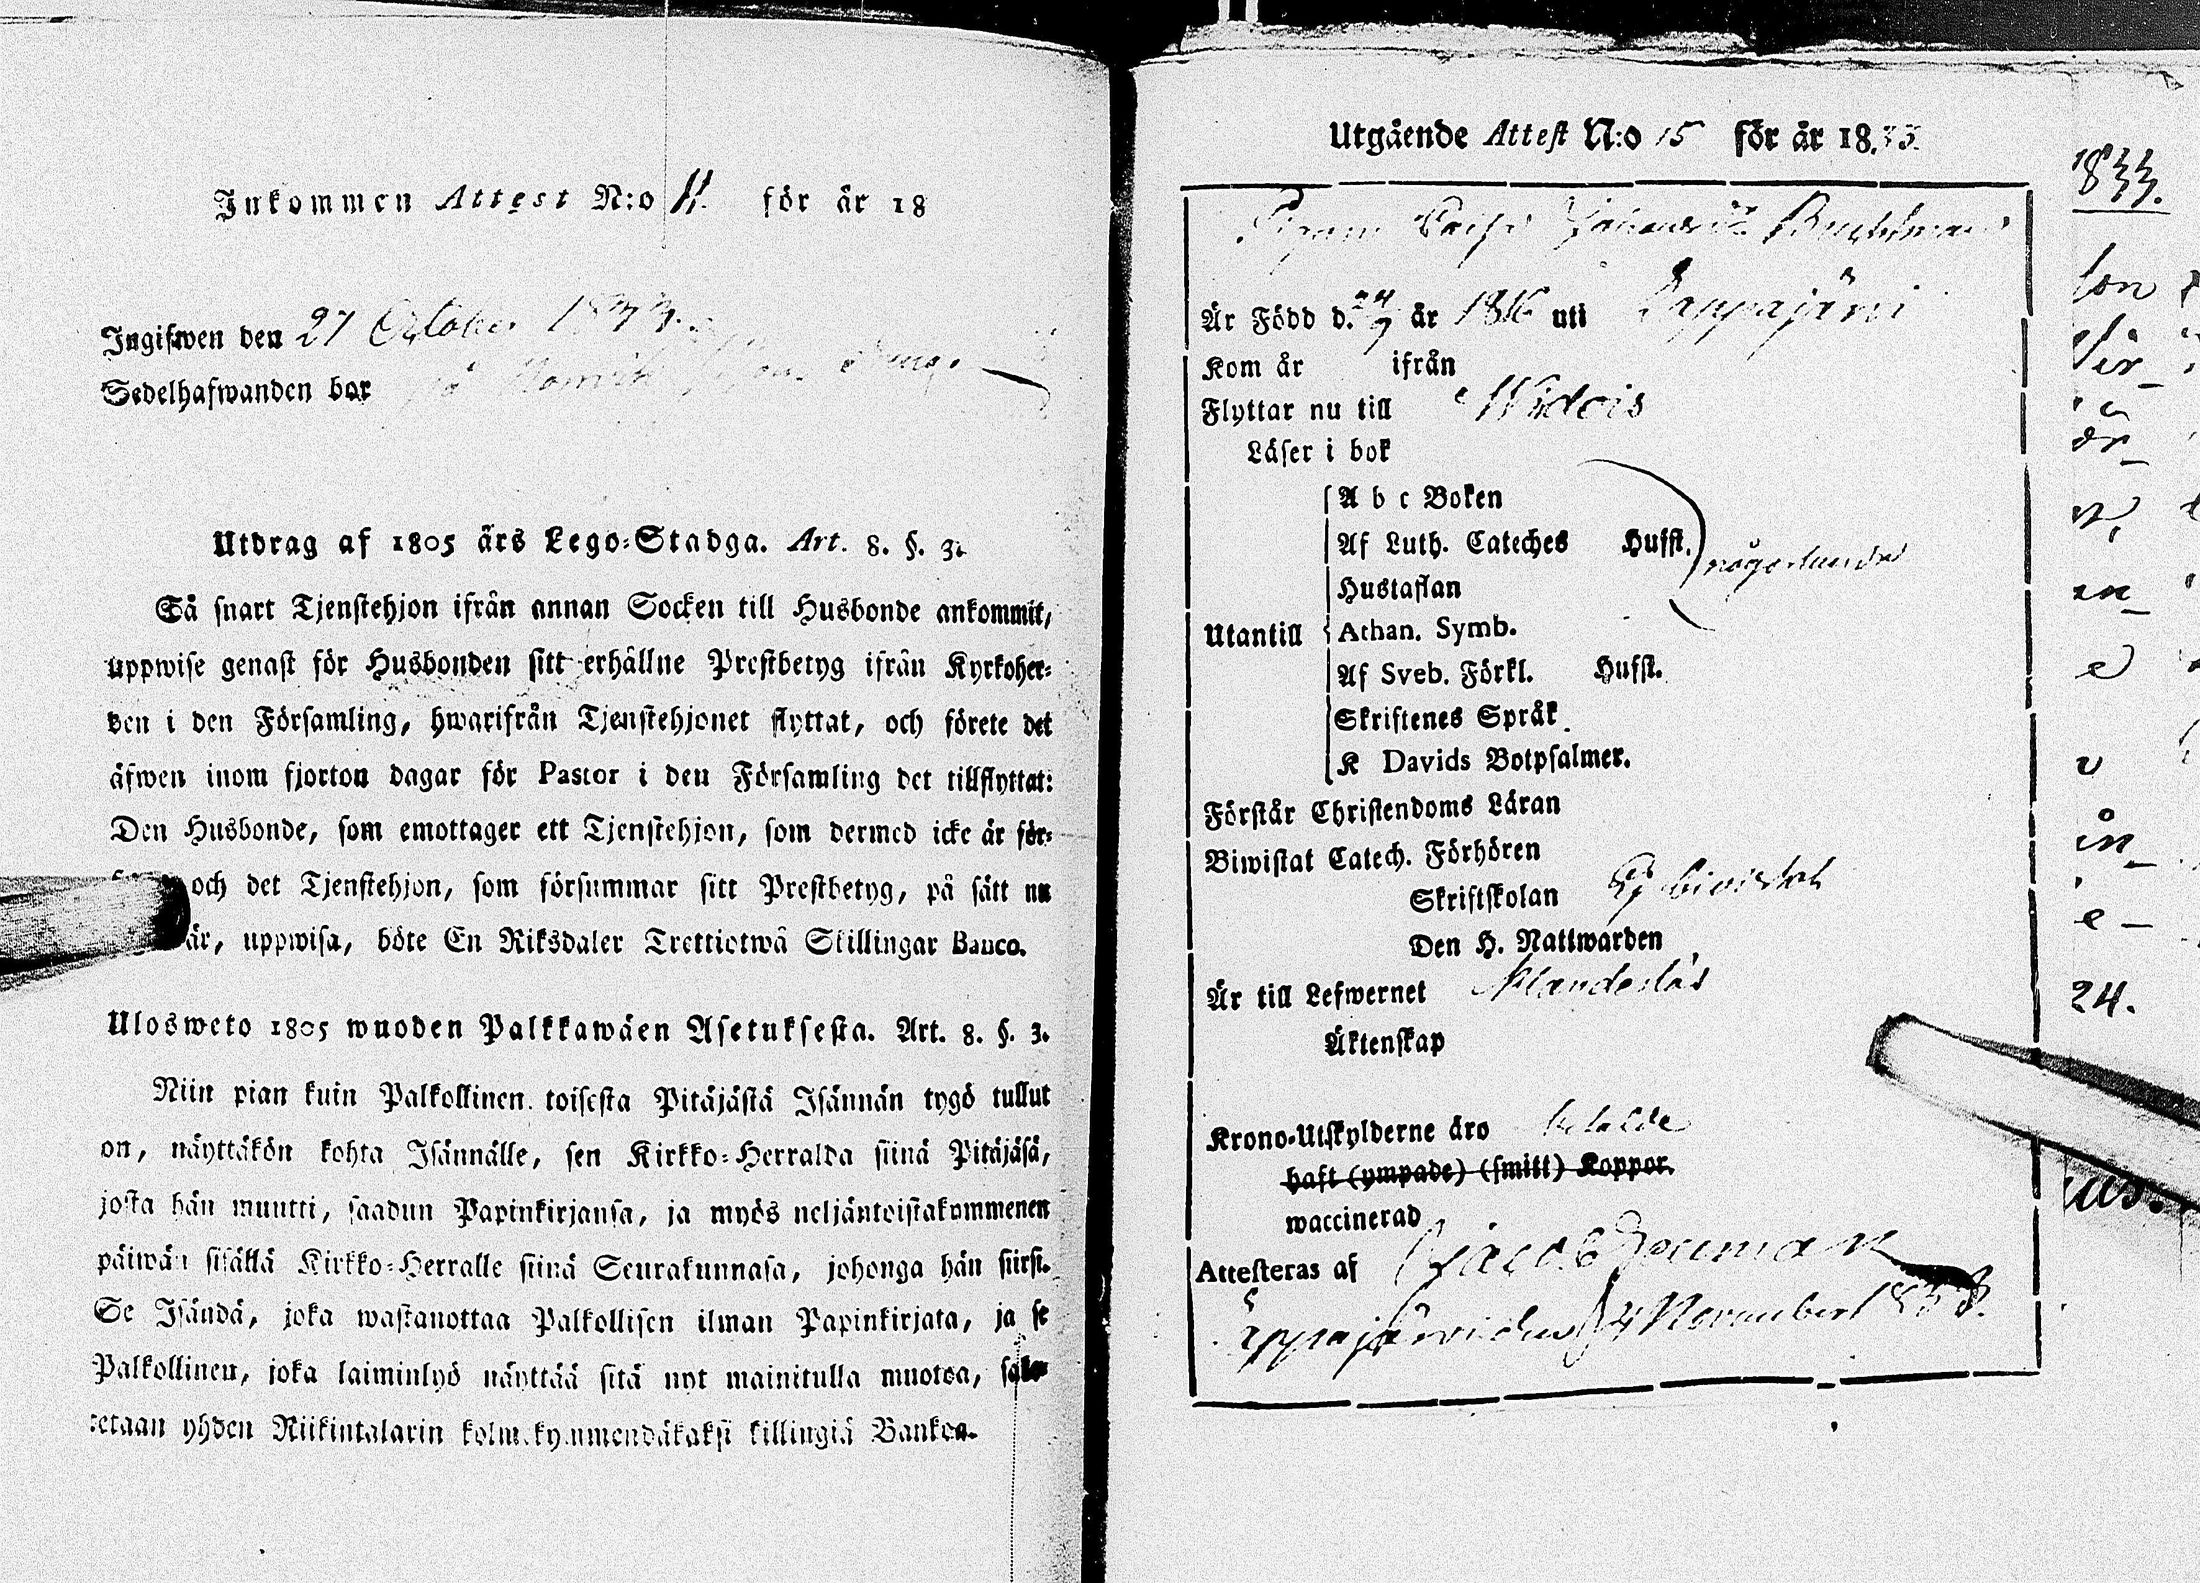 Inkommen Attest N:o 11. för år 18
Ingifwen den 27 October 1833.
Sedelhafwanden bor på
Utdrag af 1805 års Lego-Stadga. Art. 8. §. 3.
Så snart Tjenstehjon ifrån annan Socken till Husbonde ankommit,
uppwise genast för Husbonden sitt erhållne Prestbetyg ifrån Kyrkoher-
den i den Församling, hwarifrån Tjenstehjonet flyttat, och förete det
äfwen inom fjorton dagar för Pastor i den Församling det tillflyttat:
Den Husbonde, som emottager ett Tjenstehjon, som dermed icke är för-
och det Tjenstehjon, som försummar sitt Prestbetyg, på sätt nu
är, uppwisa, böte En Riksdaler Trettiotwå Skillingar Banco.
Ulosweto 1805 wuoden Palkkawäen Asetuksesta. Art. 8. §. 3.
Niin pian kuin Palkollinen toisesta Pitäjästä Isännän tygö tullut
on, näyttäkön kohta Isännälle, sen Kirkko-Herralda siinä Pitäjäsä,
josta hän muutti, saadun Papinkirjansa, ja myös neljäntoistakummenen
päiwän sisällä Kirkko-Herralle siinä Seurakunnasa, johonga hän siirst.
Se Isändä, joka wastanottaa Palkollisen ilman Papinkirjata, ja se
Palkollinen, joka laiminlyö näyttää sitä nyt mainitulla muotoa, sako-
tetaan yhden Riikintalarin kolmekymmendäkaksi killingiä Bankoa.
Utgående Attest N:o 15 för år 1833.
Pigan Caisa
Är Född d. 24/7 år 1816 uti Lappajärvi
Kom år ifrån
Flyttar nu till Windois
Läser i bok
A b c Boken
Af Luth. Cateches Hufst. någorlunda
Hustaflan
Utantill Athan. Symb.
Af Sveb. Förkl. Hufst.
Skriftenes Språk
K Davids Botpsalmer.
Förstår Christendoms Läran
Biwistat Catech. Förhören
Skriftskolan Ej biwistat
Den H. Nattwarden
Är till Lefwernet klanderlös
Äktenskap
Krono-Utskylderne äro betalde
haft (ympade) (smitt) Koppor.
waccinerad
Attesteras af Jacob
Lappajärvi den 24 November 1833.
1833.
24.